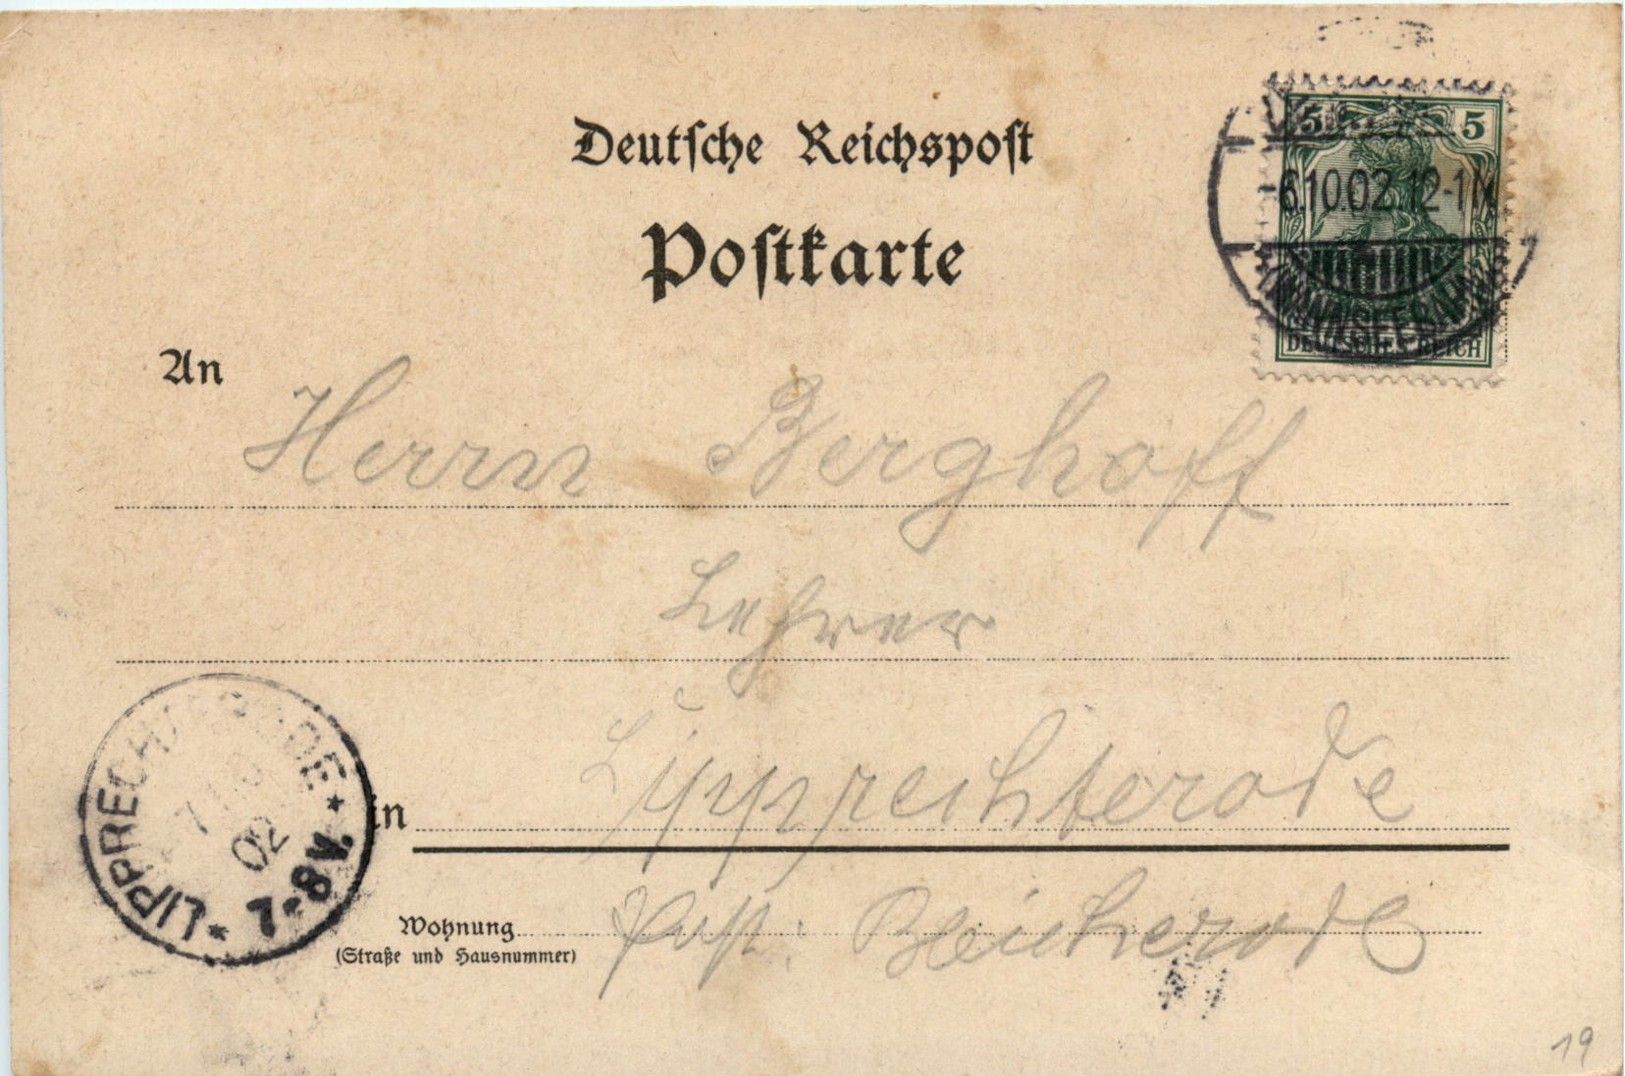 Deutsche Reichspost
Postkarte
5 5
6.10.02.12-1N
(WANNSEEBAHN)
DEUTSCHES REICH
An
Herrn Berghoff
Lehrer
in Lipprechterode
LIPPRECHTERODE
7.10.
02
7-8V.
Wohnung
(Straße und Hausnummer)
Post: Bleicherode
19